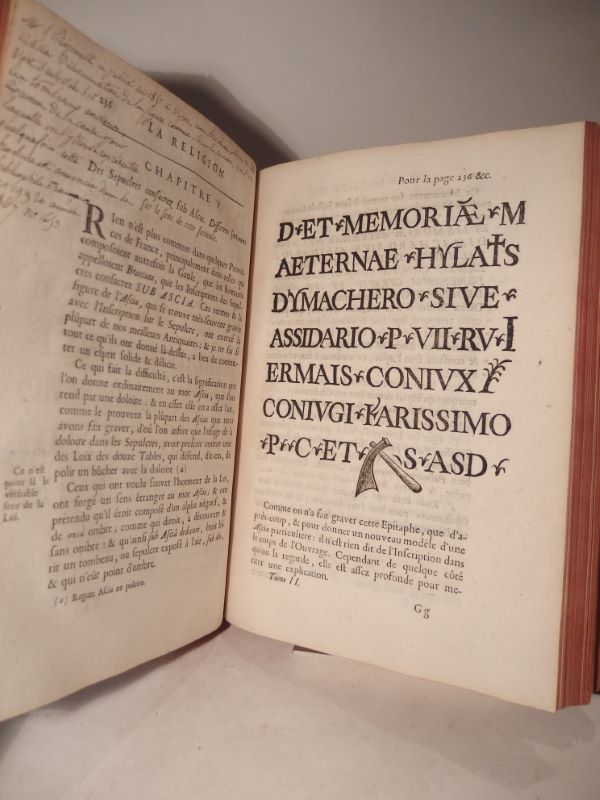 236
LA RELIGION
CHAPITRE V.
Des Sepulcres consacrez sub Ascia. Differens sentimens
sur le sens de cette formule.
RIen n'est plus commun dans quelques Provin-
ces de France, principalement dans celles qui
composoient autrefois la Gaule, que les Romains
appelloient Braccata, que les Inscriptions des Sepul-
cres consacrez SUB ASCIA. Ces termes & la
figure de l'Ascia, qui se trouve très-souvent gravée
avec l'Inscription sur le Sepulcre, ont exercé la
plûpart de nos meilleurs Antiquaires; & je ne sai si
tout ce qu'ils ont donné là-dessus, a lieu de conten-
ter un esprit solide & délicat.
Ce qui fait la difficulté, c'est la signification que
l'on donne ordinairement au mot Ascia, que l'on
rend par une doloire: & en effet elle en a assez l'air,
comme le prouvent la plûpart des Ascias que nous
avons fait graver, d'où l'on infere que l'usage de la
doloire dans les Sepulcres, avoit prescrit contre une
des Loix des douze Tables, qui défend, dit-on, de
polir un bûcher avec la doloire (a)
Ce n'est
point là le
veritable
sens de la
Loi.
Ceux qui ont voulu sauver l'honneur de la Loi,
ont forgé un sens étranger au mot Ascia, & ont
prétendu qu'il étoit composé d'un alpha négatif, &
de σκιὰ ombre; comme qui diroit, à découvert &
sans ombre: & qu'ainsi sub Asciâ dedicare, étoit bâ-
tir un tombeau, ou sepulcre exposé à l'air, sub dio,
& qui n'eût point d'ombre.
(a) Rogum Ascia ne polito.
Pour la page 236 &c.
D ET MEMORIÆ M
AETERNAE HYLATIS
DYMACHERO SIVE
ASSIDARIO P VII RV I
ERMAIS CONIVX
CONIVGI KARISSIMO
P C ET S AS D
Comme on n'a fait graver cette Epitaphe, que d'a-
près-coup, & pour donner un nouveau modèle d'une
Ascia particuliere: il n'est rien dit de l'Inscription dans
le corps de l'Ouvrage. Cependant de quelque côté
qu'on la regarde, elle est assez profonde pour me-
riter une explication.
Tome II.
Gg